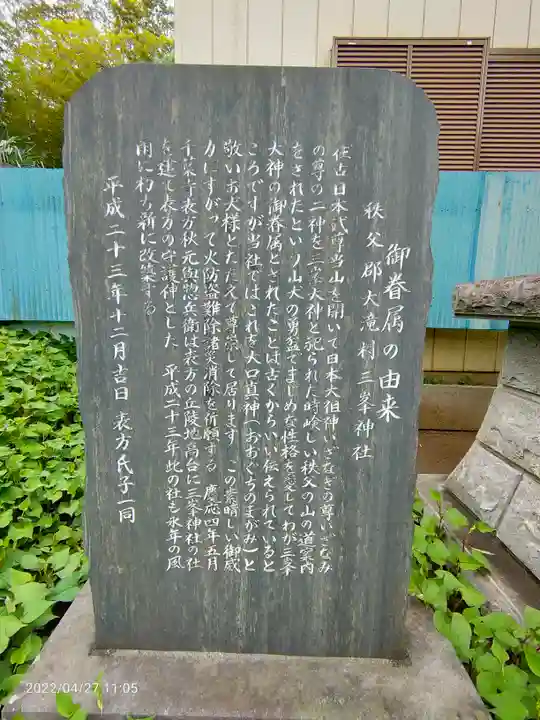 御眷属の由来
秩父郡大滝村三峯神社
往古日本武尊当山を開いて日本大祖神いざなぎの尊いざなみ
の尊の二神を三峯大神と祀られた時峻しい秩父の山の道案内
をされたという山犬の勇猛でまじめな性格を愛してわが三峯
大神の御眷属とされたことは古くからいい伝えられていると
ころですが当社ではこれを大口真神(おおぐちのまがみ)と
敬いお犬様とたたえて尊崇して居ります この素晴しい御威
力にすがって火防盗難除諸災消除を祈願する 慶応四年五月
千葉寺表方秋元惣兵衛は表方の丘陵地高台に三峯神社の社
を建て表方の守護神とした 平成二十三年此の社も永年の風
雨に朽ち新に改築する
平成二十三年十二月吉日 表方氏子一同
2022/04/27 11:05